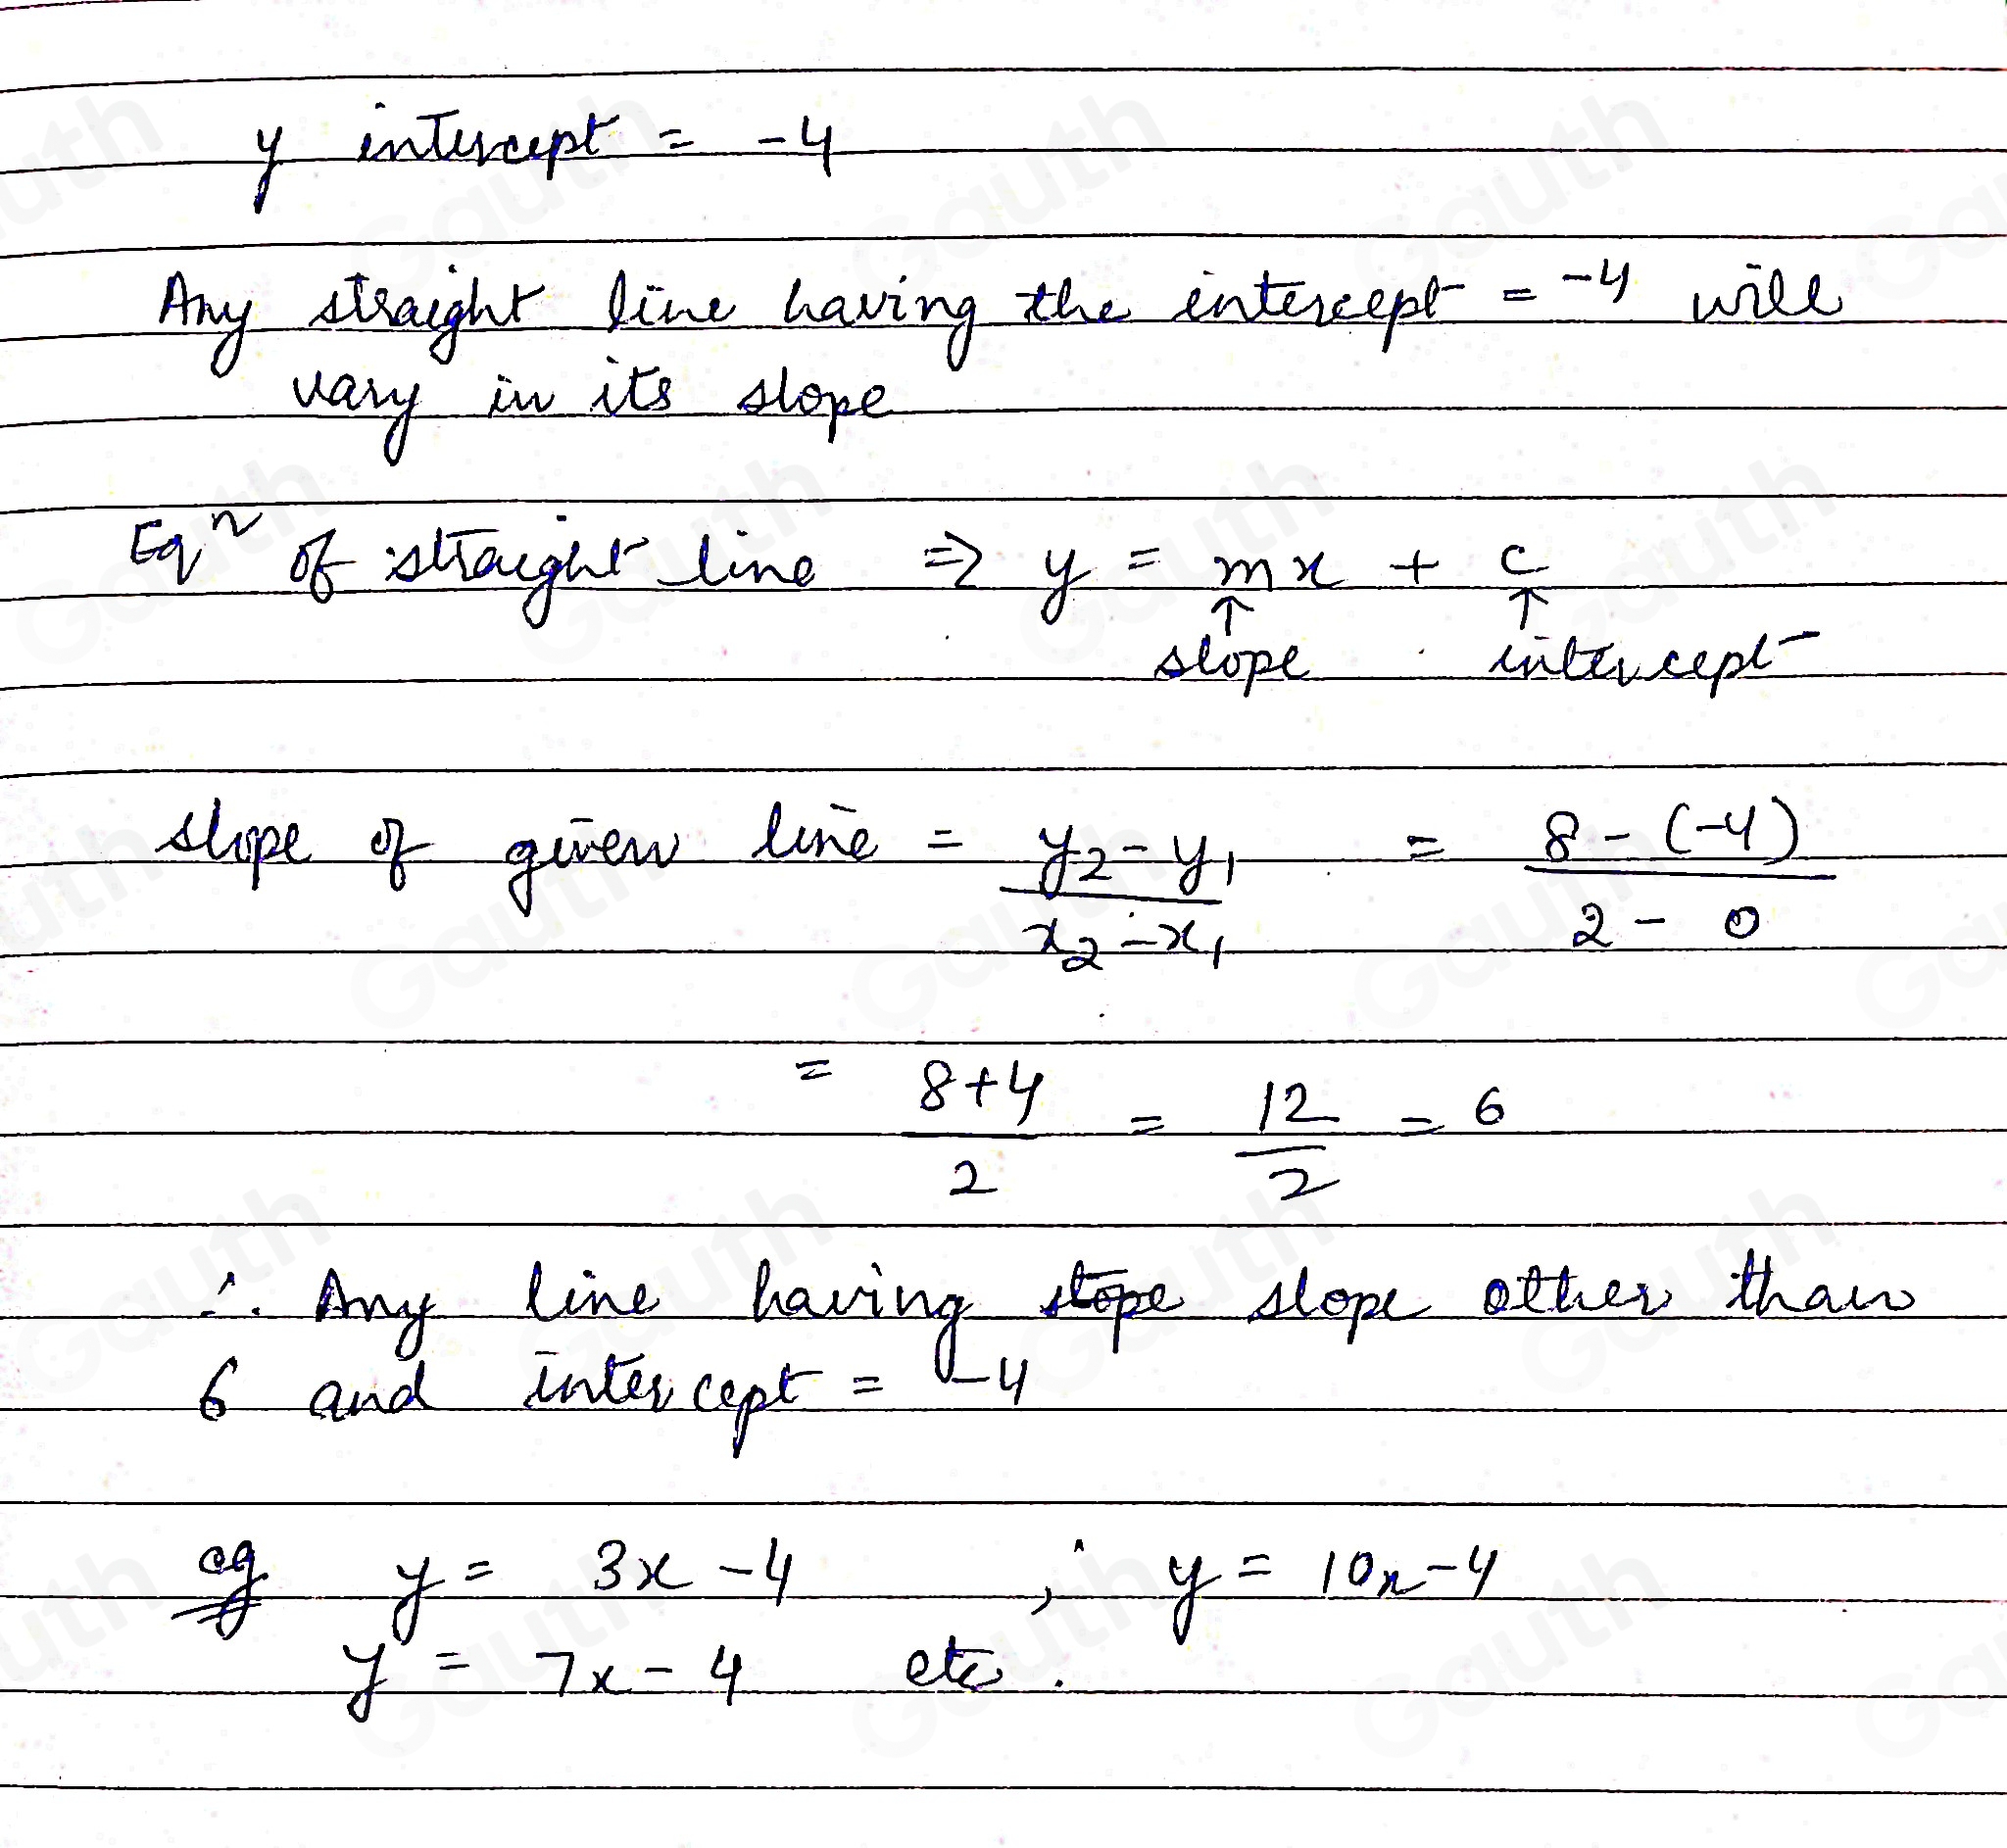 y intercept = -4
Any straight line having the intercept = -4 will
vary in its slope
Eqⁿ of straight line => y = mx + c
↑ ↑
slope intercept
slope of given line = y₂ - y₁ / x₂ - x₁ = 8 - (-4) / 2 - 0
= 8+4 / 2 = 12 / 2 = 6
∴ Any line having stope slope other than
6 and intercept = -4
eg y = 3x - 4 ; y = 10x - 4
y = 7x - 4 etc.
Gauth